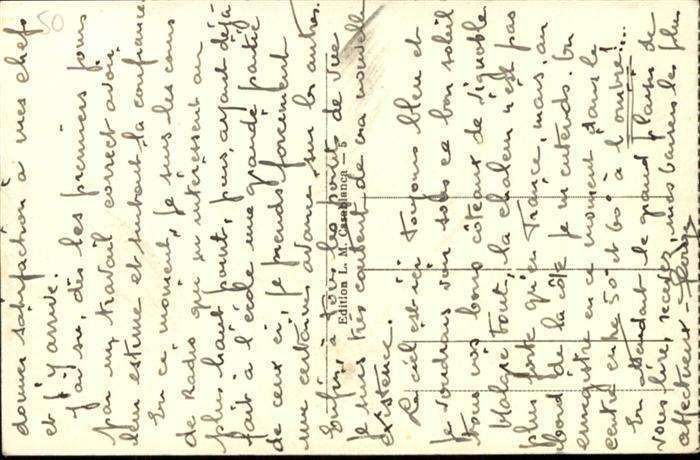 50
donner satisfaction à mes chefs
et j'y arrive.
J'ai su dès les premiers jours
par un travail correct avoir
leur estime et surtout la confiance
En ce moment, je suis les cours
de Radio qui m'intéressent au
plus haut point, puis, ayant déjà
fait à l'école une grande partie
de ceux ci, je prends forcément
une certaine avance sur les autres.
Enfin, à tous les points de vue
je suis très content de ma nouvelle
existence.
Le ciel est ici toujours bleu et
je voudrais voir sous ce bon soleil
tous vos bons côteaux de vignoble
Malgré tout, la chaleur n'est pas
plus forte qu'en France, mais, au
bord de la côte je m'entends. On
enregistre en ce moment dans le
centre entre 50° et 60° à l'ombre!...
En attendant le grand plaisir de
vous lire, recevez, mes baisers les plus
affectueux
Edition L. M. Casablanca — 5